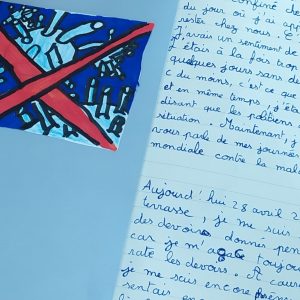 confiné ch
du jour où j'ai app
rester chez nous. C
j'avais un sentiment de
j'étais à la fois trop
quelques jours sans d
c du moins, c'est ce que
et en même temps, j'éta
disant que les politiciens
situation. Maintenant, j
vous parle de mes journée
mondiale contre la mala
Aujourd'hui 28 avril 2
terrasse, je me suis
des devoirs donnés pen
car je m' toujou
raté les devoirs. À cause
je me suis encore
sentais en